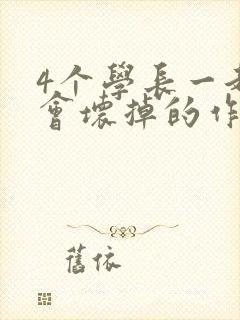 4个學長一
會壞掉的作
舊依